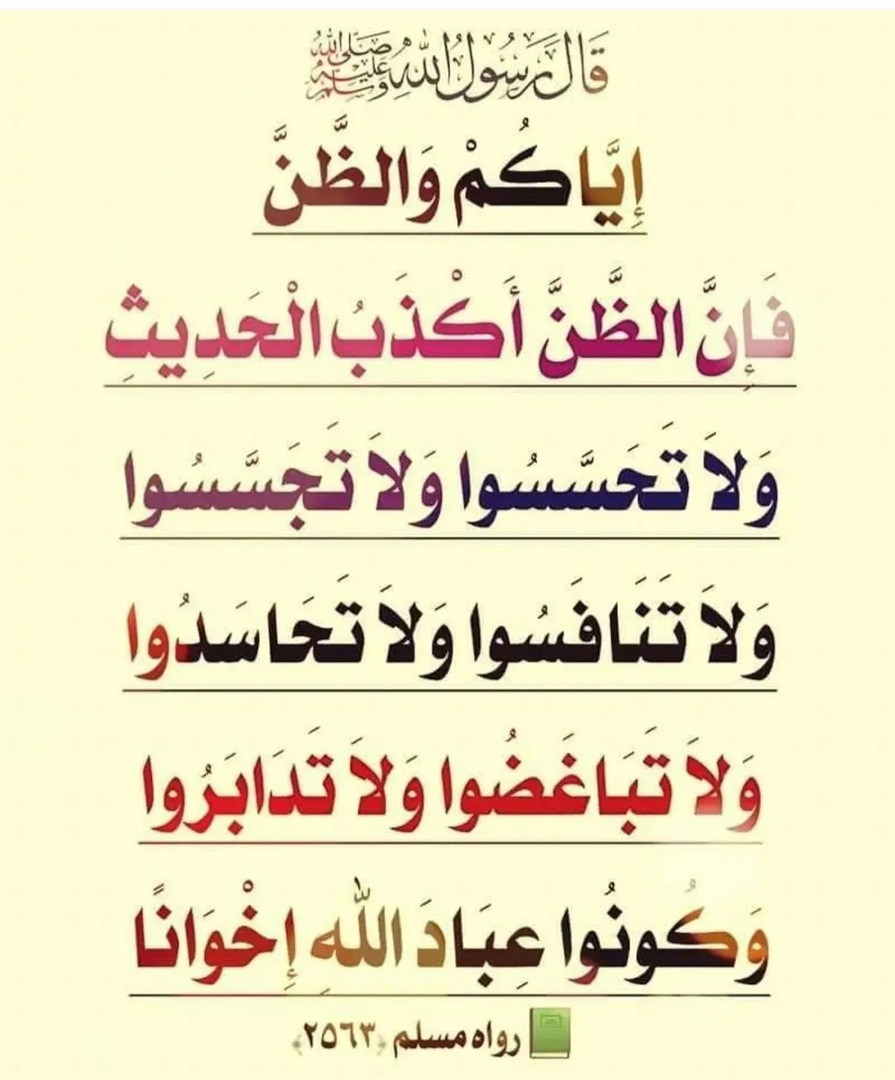 قَالَ رَسُولُ اللهِ صَلَّى اللهُ عَلَيْهِ وَسَلَّمَ
إِيَّاكُمْ وَالظَّنَّ
فَإِنَّ الظَّنَّ أَكْذَبُ الْحَدِيثِ
وَلاَ تَحَسَّسُوا وَلاَ تَجَسَّسُوا
وَلاَ تَنَافَسُوا وَلاَ تَحَاسَدُوا
وَلاَ تَبَاغَضُوا وَلاَ تَدَابَرُوا
وَكُونُوا عِبَادَ اللهِ إِخْوَانًا
رواه مسلم ﴿٢٥٦٣﴾